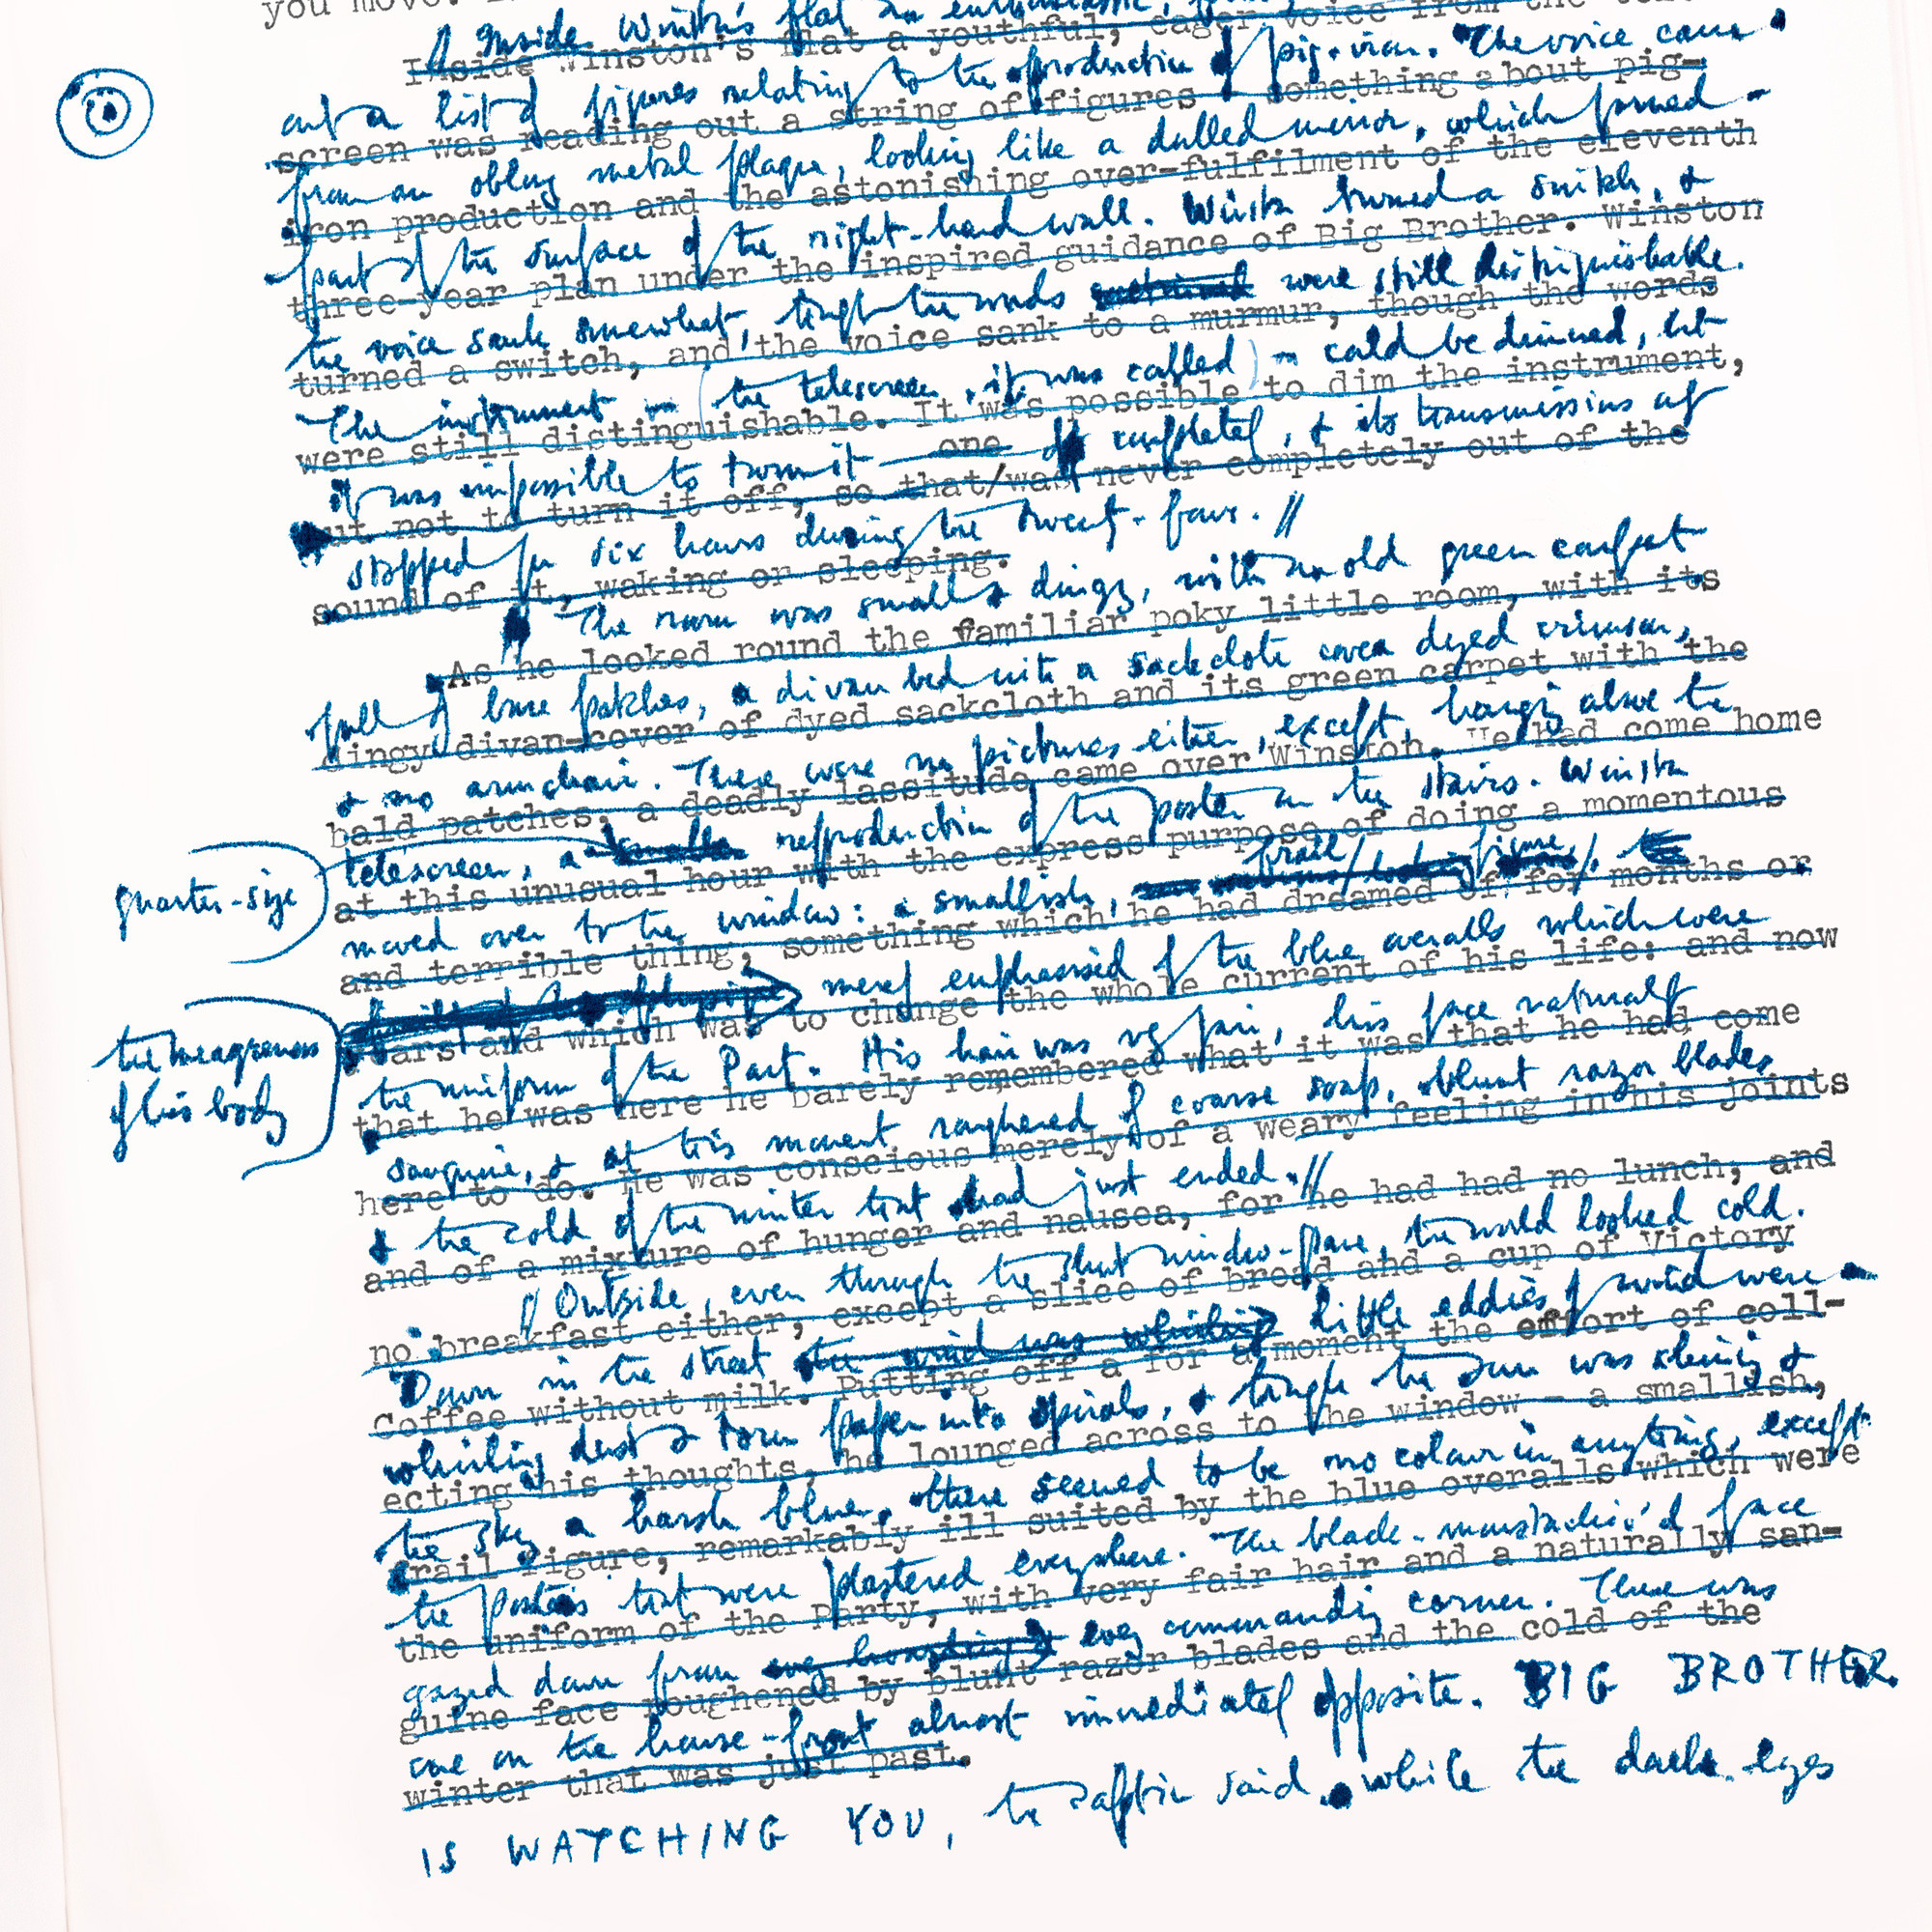 you move.
// Inside Winston's flat an enthusiastic,
Inside Winston's flat a youthful, eager voice from the tele-
out a list of figures relating to the production of pig-iron. The voice came
screen was reading out a string of figures - something about pig-
from an oblong metal plaque, looking like a dulled mirror, which formed
iron production and the astonishing over-fulfilment of the eleventh
part of the surface of the right-hand wall. Winston turned a switch, &
three-year plan under the inspired guidance of Big Brother. Winston
the voice sank somewhat, though the words were still distinguishable.
turned a switch, and the voice sank to a murmur, though the words
The instrument (the telescreen, it was called) could be dimmed, but
were still distinguishable. It was possible to dim the instrument,
it was impossible to turn it off completely, & its transmissions only
one
but not to turn it off, so that/was never completely out of the
stopped for six hours during the twenty-four. //
sound of it, waking or sleeping.
The room was small & dingy, with an old green carpet
As he looked round the familiar poky little room, with its
full of bare patches, a divan bed with a sackcloth cover dyed crimson,
dingy divan-cover of dyed sackcloth and its green carpet with the
& no armchair. There were no pictures either, except, hanging above the
bald patches, a deadly lassitude came over Winston. He had come home
quarter-size
telescreen, a smaller reproduction of the poster on the stairs. Winston
at this unusual hour with the express purpose of doing a momentous
moved over to the window: a smallish, frail figure,
and terrible thing, something which he had dreamed of for months or
the meagreness
of his body
merely emphasised by the blue overalls which were
years and which was to change the whole current of his life: and now
the uniform of the Party. His hair was very fair, his face naturally
that he was here he barely remembered what it was that he had come
sanguine, & at this moment roughened by coarse soap, blunt razor blades
here to do. He was conscious merely of a weary feeling in his joints
& the cold of the winter that had just ended. //
and of a mixture of hunger and nausea, for he had had no lunch, and
// Outside, even through the shut window-pane, the world looked cold.
no breakfast either, except a slice of bread and a cup of Victory
Down in the street the wind was whirling little eddies of wind were
Coffee without milk. Putting off a for a moment the effort of coll-
whirling dust & torn paper into spirals, & though the sun was shining &
ecting his thoughts, he lounged across to the window - a smallish,
the sky a harsh blue, there seemed to be no colour in anything, except
frail figure, remarkably ill suited by the blue overalls which were
the posters that were plastered everywhere. The black-moustachio'd face
the uniform of the Party, with very fair hair and a naturally san-
gazed down from every hoarding every commanding corner. There was
guine face roughened by blunt razor blades and the cold of the
one on the house-front almost immediately opposite. BIG BROTHER
winter that was just past.
IS WATCHING YOU, the caption said, while the dark eyes